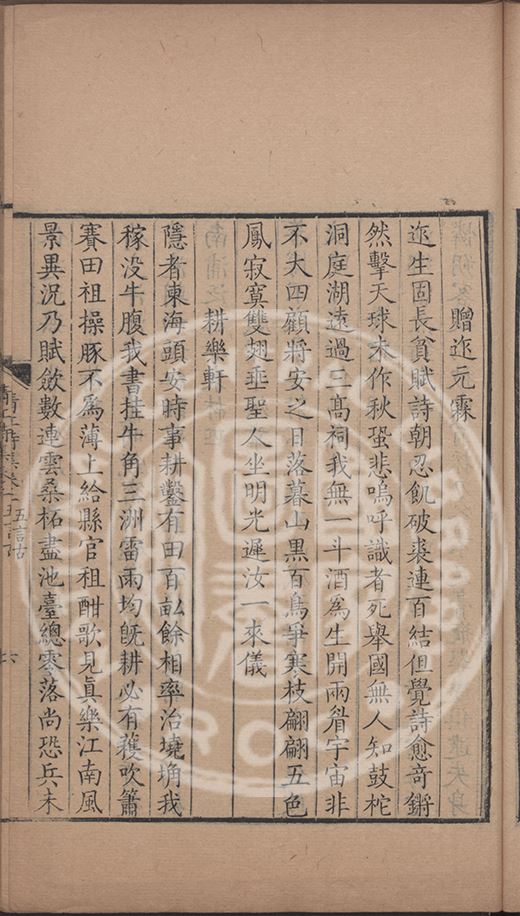 贈迮元霖
迮生固長貧賦詩朝忍飢破裘連百結但覺詩愈奇鏘
然擊天球未作秋蛩悲嗚呼識者死舉國無人知鼓柁
洞庭湖遠過三髙祠我無一斗酒爲生開兩眉宇宙非
不大四顧將安之日落暮山黑百鳥爭寒枝翩翩五色
鳳寂寞雙翅垂聖人坐明光遲汝一來儀
耕樂軒
隱者東海頭安時事耕鑿有田百畝餘相率治墝埆我
稼没牛腹我書挂牛角三洲雷雨均旣耕必有穫吹簫
賽田祖操豚不爲薄上給縣官租酣歌見眞樂江南風
景異況乃賦斂數連雲桑柘盡池臺總零落尚恐兵未
五言古
六